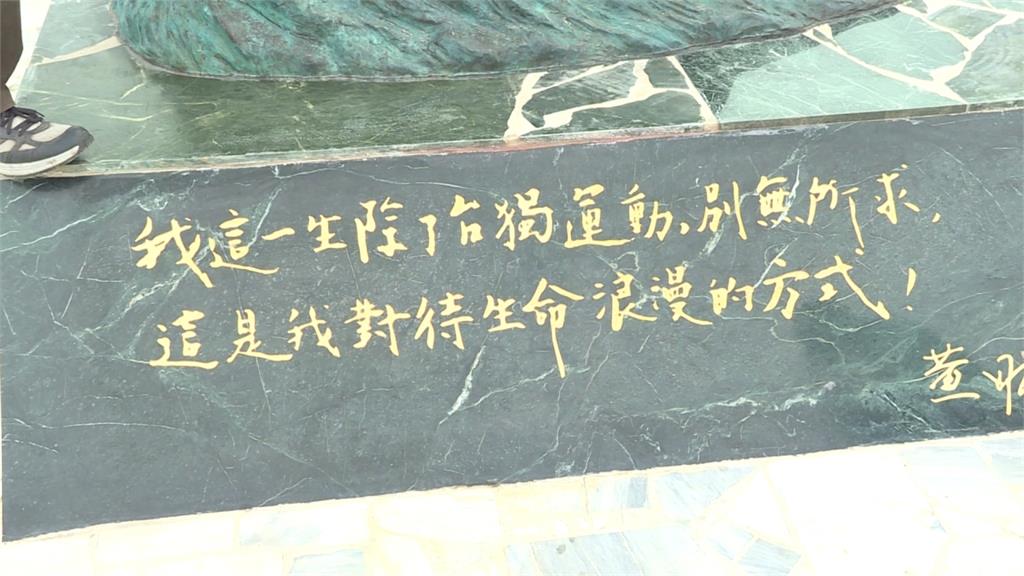 我這一生除了台獨運動,別無所求,
這是我對待生命浪漫的方式!
黃